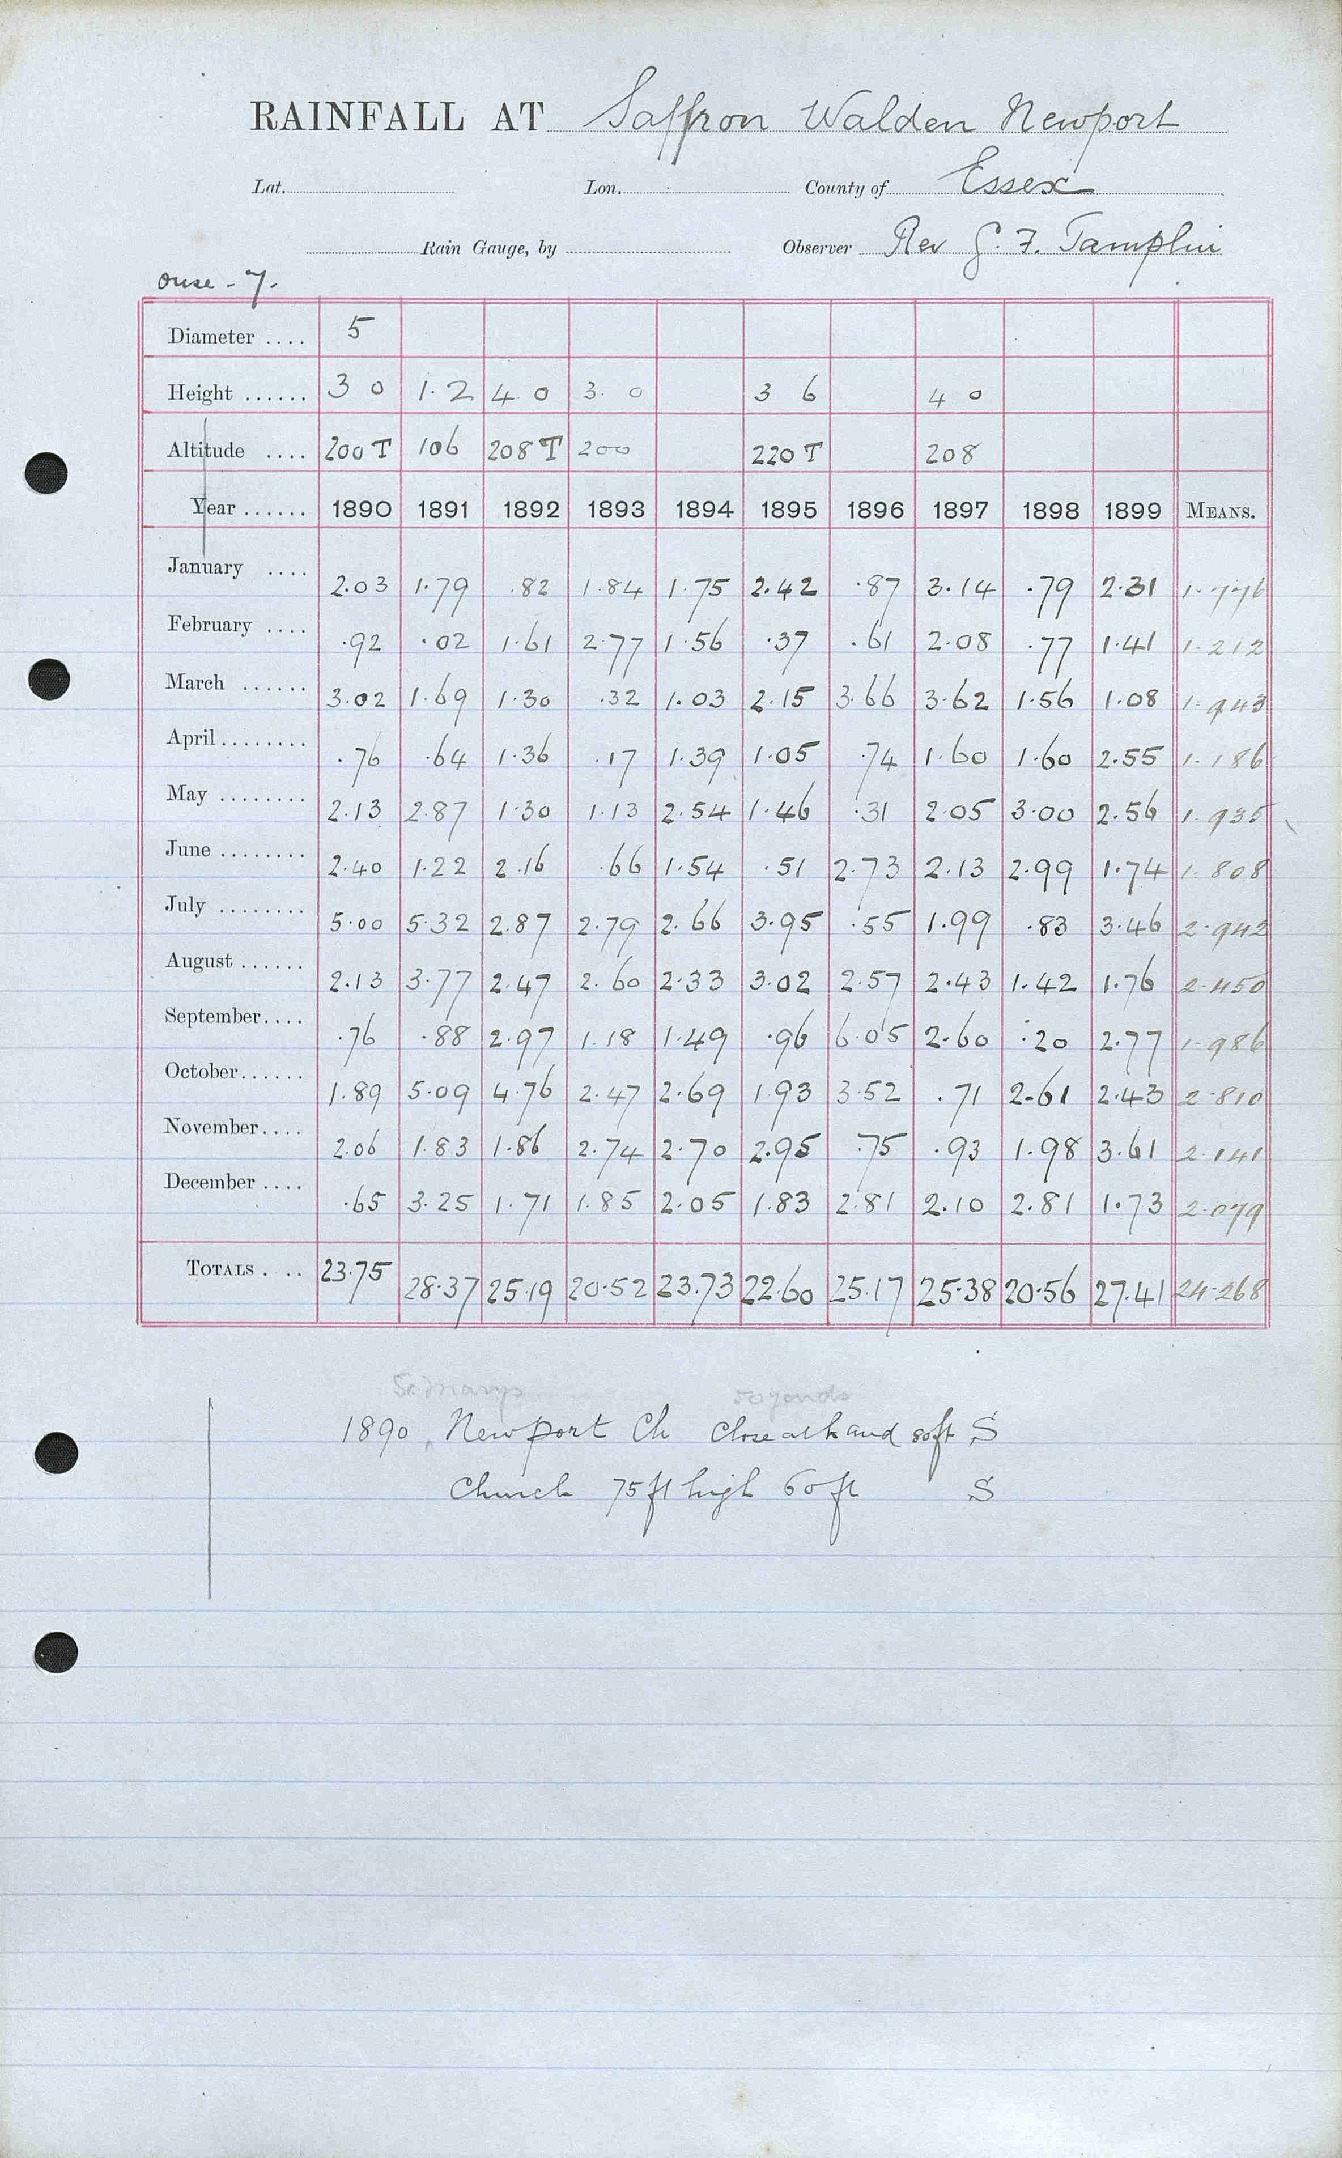 RAINFALL AT Saffron Walden Newport
Lat. Lon. County of Essex
Rain Gauge, by Observer Rev G. F. Tamplin
Ouse - 7.
Diameter .... 5
Height ...... 3 0 1. 2 4 0 3. 0 3 6 4 0
Altitude .... 200 T 106 208 T 200 220 T 208
Year ...... 1890 1891 1892 1893 1894 1895 1896 1897 1898 1899 MEANS.
January .... 2.03 1.79 .82 1.84 1.75 2.42 .87 3.14 .79 2.31 1.776
February .... .92 .02 1.61 2.77 1.56 .37 .61 2.08 .77 1.41 1.212
March ...... 3.02 1.69 1.30 .32 1.03 2.15 3.66 3.62 1.56 1.08 1.943
April ........ .76 .64 1.36 .17 1.39 1.05 .74 1.60 1.60 2.55 1.186
May ........ 2.13 2.87 1.30 1.13 2.54 1.46 .31 2.05 3.00 2.56 1.935
June ........ 2.40 1.22 2.16 .66 1.54 .51 2.73 2.13 2.99 1.74 1.808
July ........ 5.00 5.32 2.87 2.79 2.66 3.95 .55 1.99 .83 3.46 2.942
August ...... 2.13 3.77 2.47 2.60 2.33 3.02 2.57 2.43 1.42 1.76 2.450
September.... .76 .88 2.97 1.18 1.49 .96 6.05 2.60 .20 2.77 1.986
October...... 1.89 5.09 4.76 2.47 2.69 1.93 3.52 .71 2.61 2.43 2.810
November.... 2.06 1.83 1.86 2.74 2.70 2.95 .75 .93 1.98 3.61 2.141
December .... .65 3.25 1.71 1.85 2.05 1.83 2.81 2.10 2.81 1.73 2.079
TOTALS .... 23.75 28.37 25.19 20.52 23.73 22.60 25.17 25.38 20.56 27.41 24.268
St Marys
1890 Newport Ch Close at hand 80ft S
Church 75ft high 60ft S